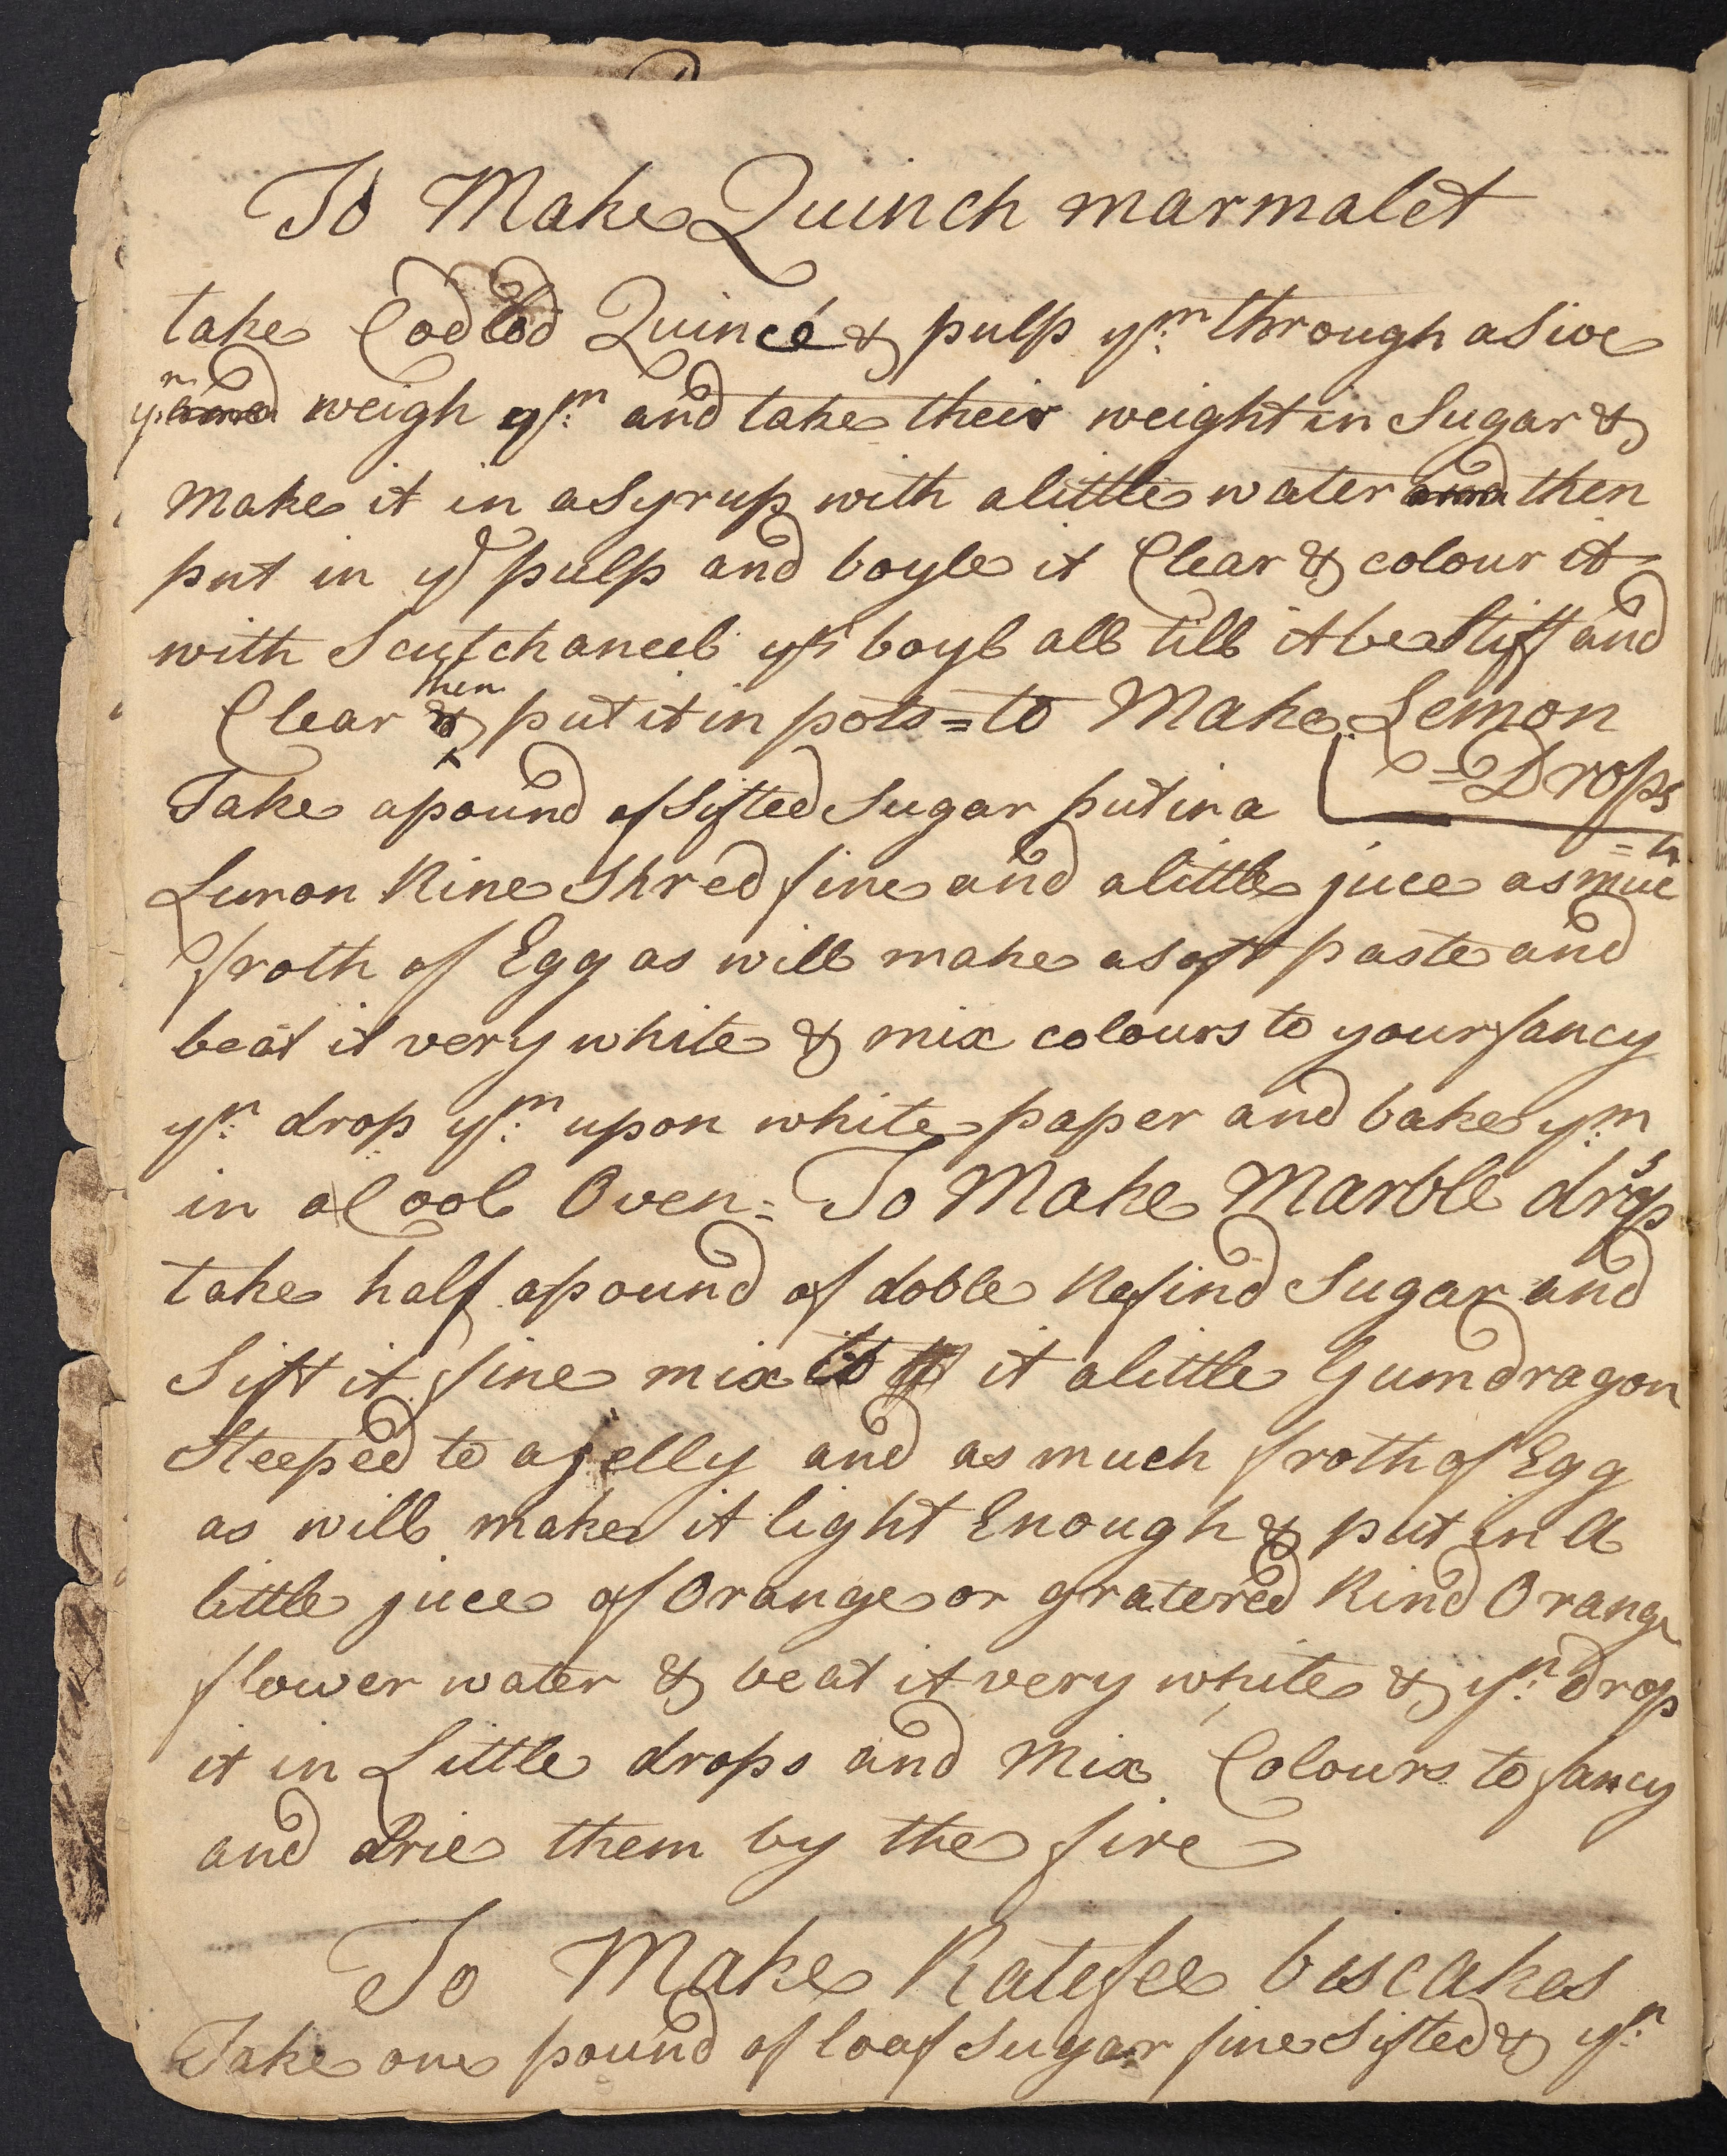 To Make Quinch marmalet
take Codled Quince & pulp ym through a Sive
yn weigh ym and take their weight in Sugar &
Make it in a Syrup with a little water and then
put in ye pulp and boyle it Clear & colour it
with Scutchaneel yn boyl all till it be stiff and
Clear & then put it in pots = to Make Lemon
= Drops
Take a pound of Sifted Sugar put in a
Lumon Rine Shred fine and a little juce as muc
= h
froth of Egg as will make a soft paste and
beat it very white & mix colours to your fancy
yn drop ym upon white paper and bake ym
in a Cool Oven = To Make Marble drops
take half a pound of doble Refind Sugar and
Sift it fine mix to it a little Gumdragon
Steeped to a jelly and as much froth of Egg
as will make it light Enough & put in A
little juce of Orange or gratered Rind Orange
flower water & beat it very white & yn drop
it in Little drops and Mix Colours to fancy
and drie them by the fire
To Make Ratefee biscakes
Take one pound of loaf Sugar fine Sifted & yn